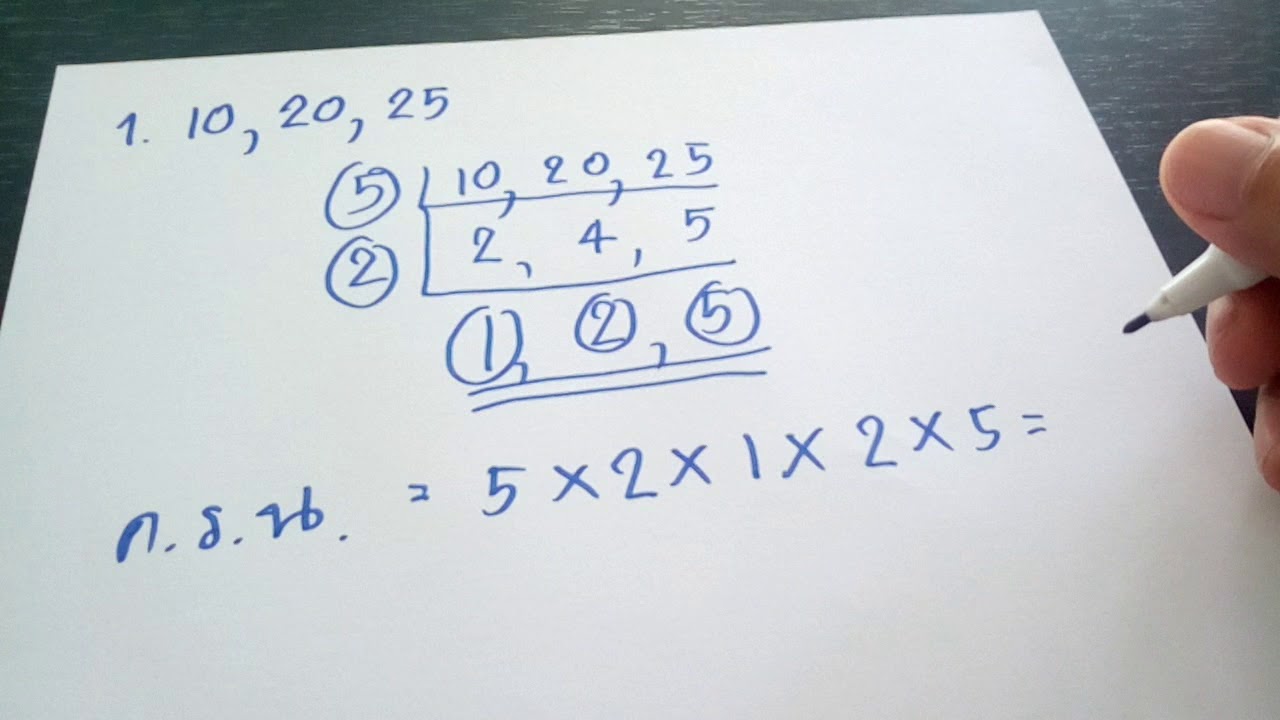 1. 10, 20, 25
5 10, 20, 25
2 2, 4, 5
1, 2, 5
ค.ร.น. = 5 × 2 × 1 × 2 × 5 =